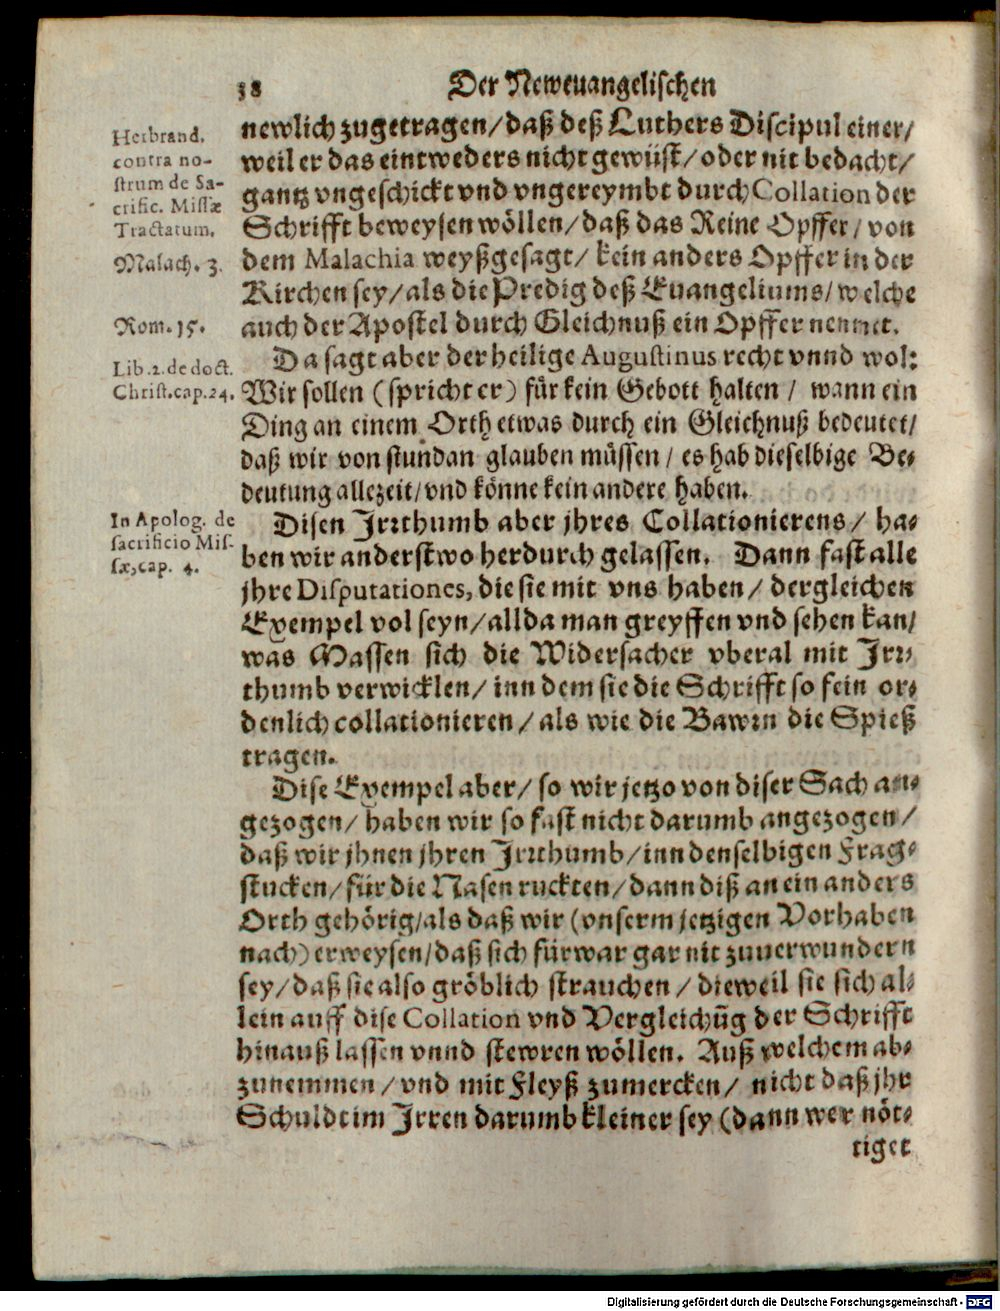 38
Der Neweuangelischen
newlich zugetragen/ daß deß Luthers Discipul einer/
weil er das eintweders nicht gewüst/ oder nit bedacht/
gantz vngeschickt vnd vngereymbt durch Collation der
Schrifft beweysen wöllen/ daß das Reine Opffer/ von
dem Malachia weyßgesagt/ kein anders Opffer in der
Kirchen sey/ als die Predig deß Euangeliums/ welche
auch der Apostel durch Gleichnuß ein Opffer nennet.
Herbrand.
contra no-
strum de Sa-
crific. Missæ
Tractatum.
Malach. 3.
Rom. 15.
Da sagt aber der heilige Augustinus recht vnnd wol:
Wir sollen (spricht er) für kein Gebott halten / wann ein
Ding an einem Orth etwas durch ein Gleichnuß bedeutet/
daß wir von stundan glauben müssen / es hab dieselbige Be-
deutung allezeit/ vnd könne kein andere haben.
Lib. 2. de doct.
Christ. cap. 24.
Disen Irrthumb aber jhres Collationierens/ ha-
ben wir anderstwo herdurch gelassen. Dann fast alle
jhre Disputationes, die sie mit vns haben/ dergleichen
Exempel vol seyn/ allda man greyffen vnd sehen kan/
was Massen sich die Widersacher vberal mit Irr-
thumb verwicklen/ inn dem sie die Schrifft so fein or-
denlich collationieren/ als wie die Bawrn die Spieß
tragen.
In Apolog. de
sacrificio Mis-
sæ, cap. 4.
Dise Exempel aber/ so wir jetzo von diser Sach an-
gezogen/ haben wir so fast nicht darumb angezogen/
daß wir jhnen jhren Irrthumb/ inn denselbigen Frag-
stucken/ für die Nasen ruckten/ dann diß an ein anders
Orth gehörig/ als daß wir (vnserm jetzigen Vorhaben
nach) erweysen/ daß sich fürwar gar nit zuuerwundern
sey/ daß sie also gröblich strauchen / dieweil sie sich al-
lein auff dise Collation vnd Vergleichũg der Schrifft
hinauß lassen vnnd stewren wöllen. Auß welchem ab-
zunemmen / vnd mit Fleyß zumercken/ nicht daß jhr
Schuldt im Irren darumb kleiner sey (dann wer nöt-
tiget
Digitalisierung gefördert durch die Deutsche Forschungsgemeinschaft - DFG